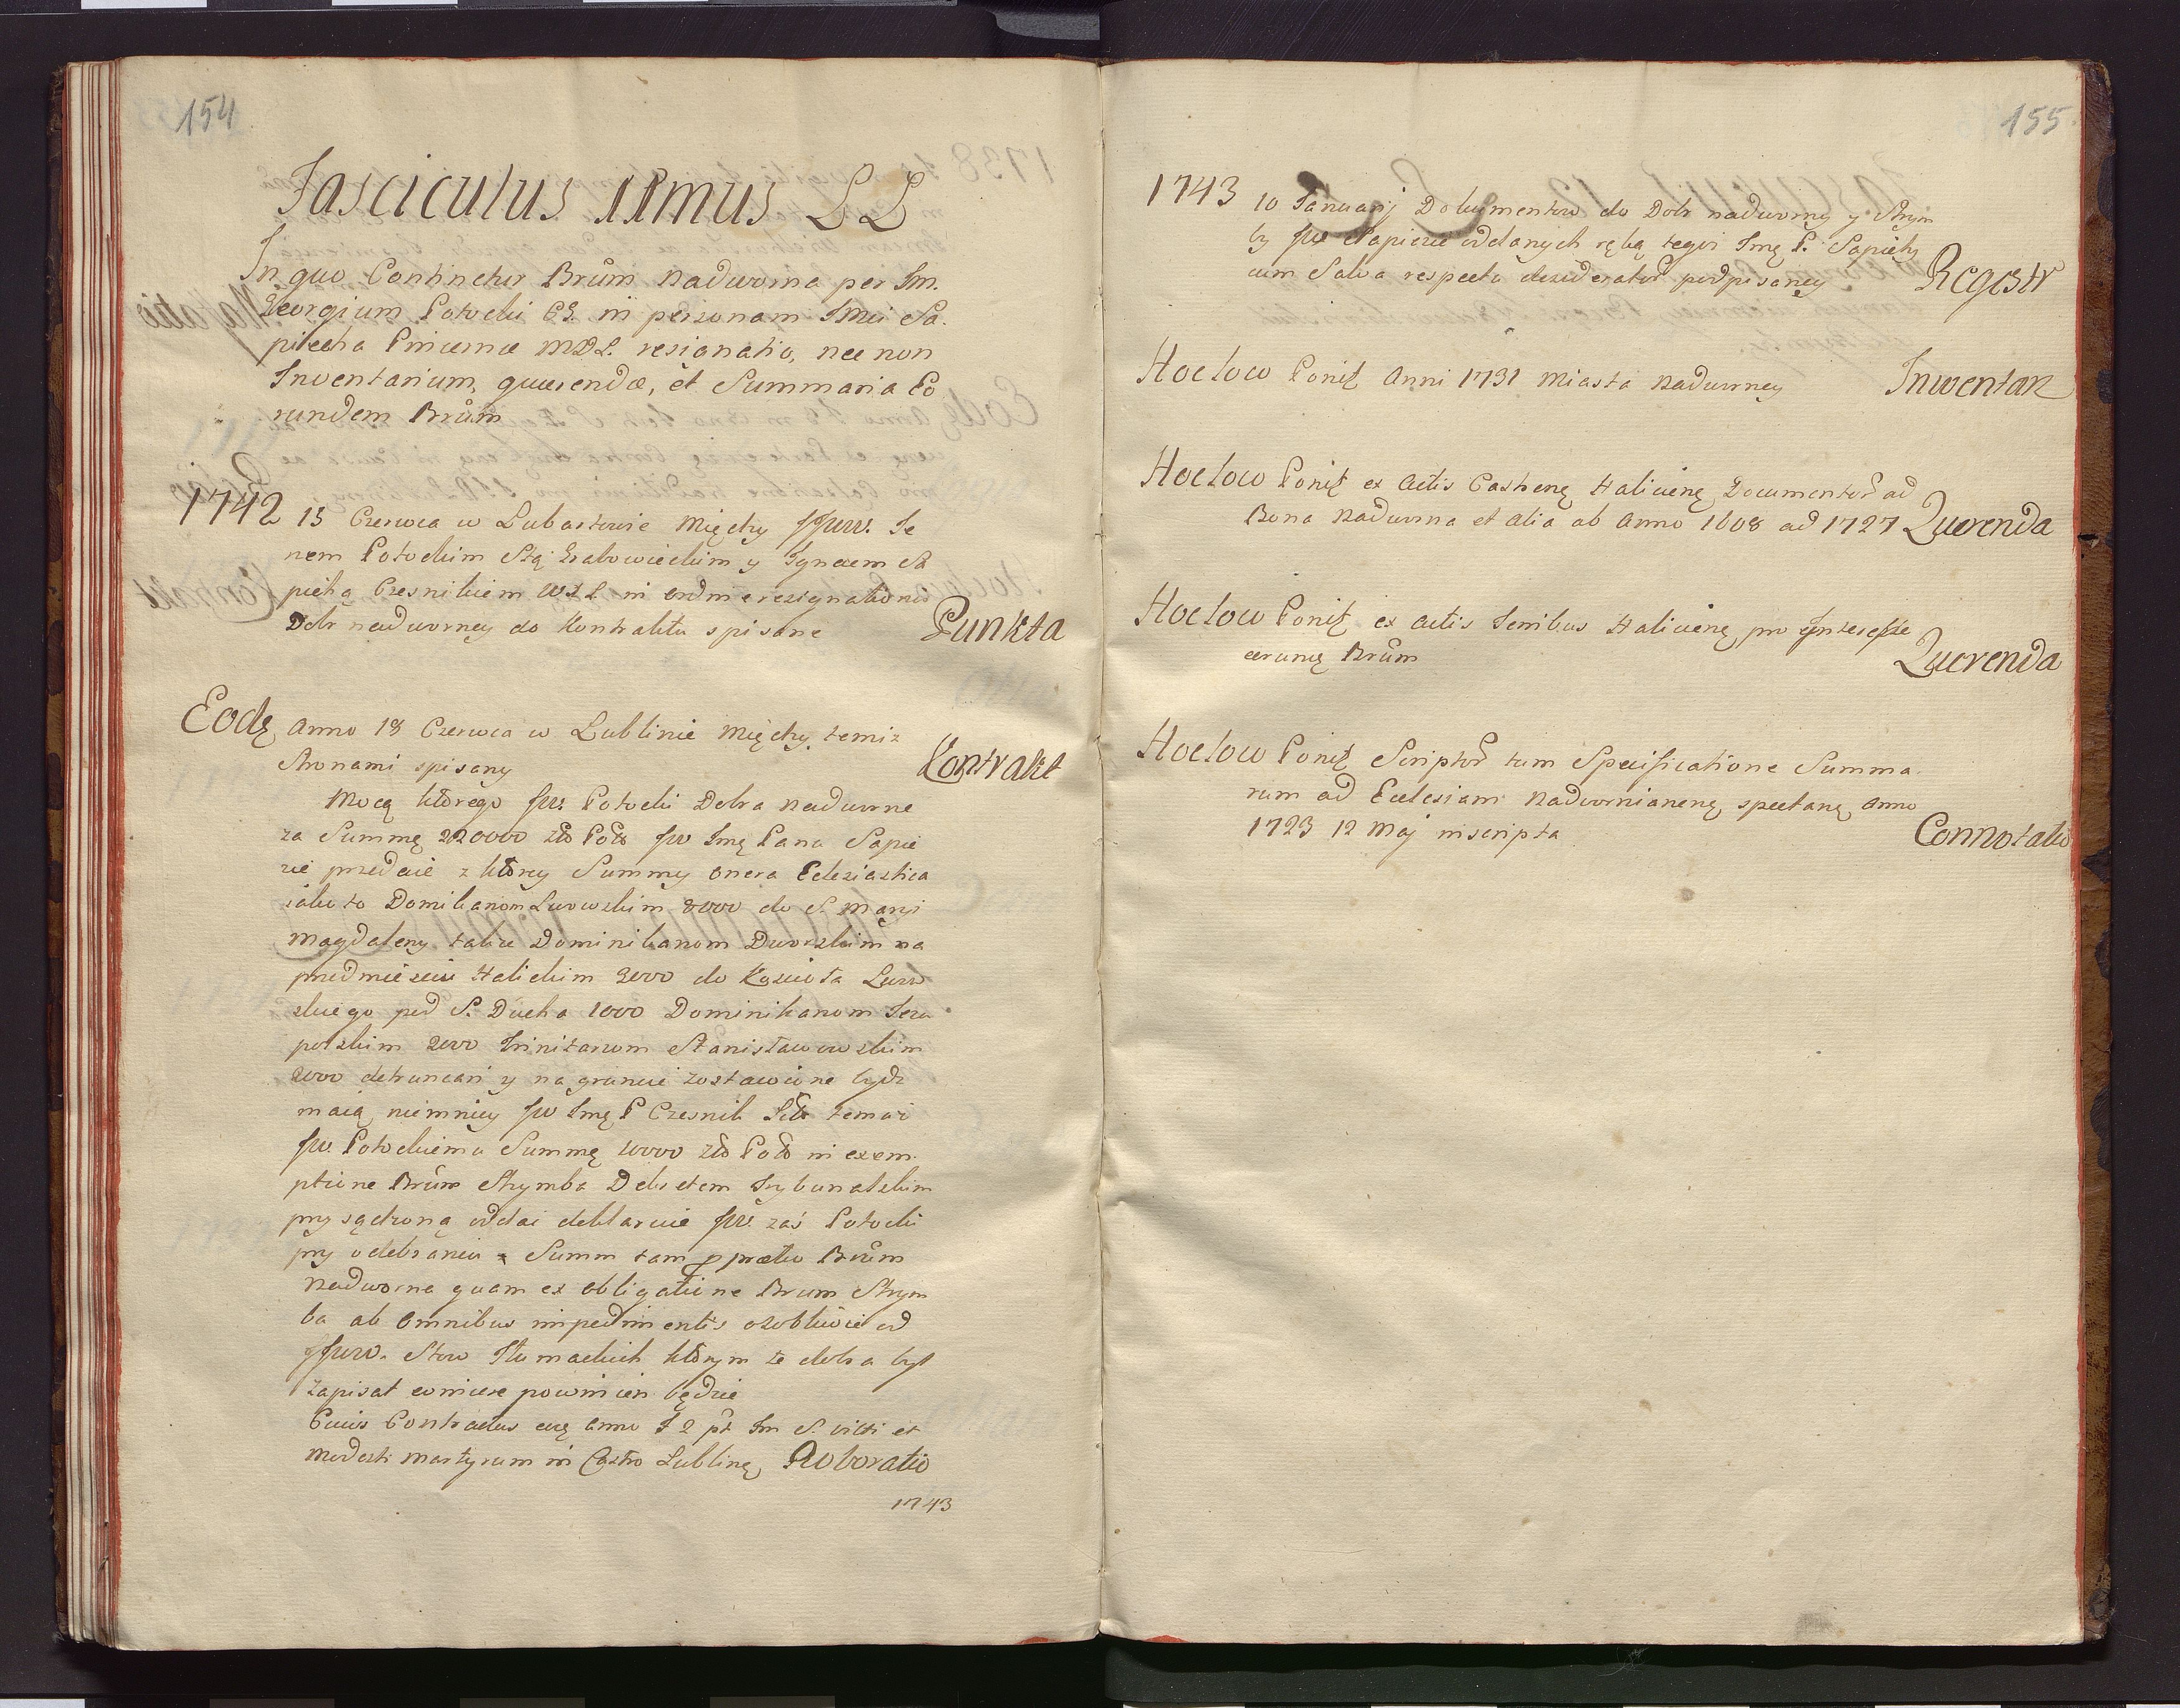 154
Fasciculus 11mus LL
In quo Continetur Brūm Nadworna per Im.
Georgium Potocki CS. in personam Imci Sa
piecha Pincernæ MDL. resignatio, nec non
Inventarium, querendæ, et Summaria Eo
rundem Brūm
1742 15 Czerwca w Lubartowie Między JJww. Je
nem Potockim Stą Grabowieckim y Ignacem Sa
piehą Czesnikiem WXL in ordine rezignationis
Dobr nadworney do Kontraktu spisane Punkta
Eodę Anno 18 Czerwca w Lublinie Między temiz
Stronami spisany Kontrakt
Mocą ktorego Jw. Potocki Dobra Nadworne
za Summę 220000 zło Polo Jw Imę Pana Sapie
zie przedaie z ktory Summy onera Eclesiastica
iako to Dominikanom Lwowskim 8000 do S. Maryi
Magdaleny takze Dominikanom Dworskim na
predmiesciu Halickim 2000 do Koscioła Lwow
skiego pod S. Ducha 1000 Dominikanom Jezu
polskim 2000 Trinitarom Stanisławowskim
2000 detruncari y na gruncie zostawione bydz
maią niemniey Jw Imę P Czesnik Lit. temuż
Jw. Potockiemu Summę 10000 Zło Polo in exem
ptione Brūm Strymba Dekretem Trybunalskim
przysądzoną oddać deklaruie Jw. zaś Potocki
przy odebraniu Summ tam p pretio Brūm
Nadworna quam ex obligatione Brum Strym
ba ab omnibus impedimentis osobliwie od
JJww. Stow Tłumackich ktorym te dobra był
zapisał evincere powinien będzie
Cuius Contractus eoę anno f 2 pt Im S. Viti et
Modesti martyrum in Castro Lublinę, Roboratio
1743
155
1743 10 Januarij Dokumentow do Dobr nadworny y Strym
by Jw Sapiezie oddanych ręką tegoż Imę P. Sapiehy
cum Salva respectu desideratorū podpisaney Regestr
Hocloco Ponit Anni 1731 Miasta Nadworney Inwentarz
Hocloco Ponit ex Actis Castrenę Halicienę Documentorū ad
Bona Nadworna et alia ab Anno 1608 ad 1727 Querenda
Hocloco Ponit ex Actis Terribus Halicienę pro Interesse
earunę Brūm Querenda
Hocloco Ponit Scriptorū tum Specificatione Summa
rum ad Ecclesiam Nadwornianenę spectanę Anno
1723 12 Maj inscripta Connotatio